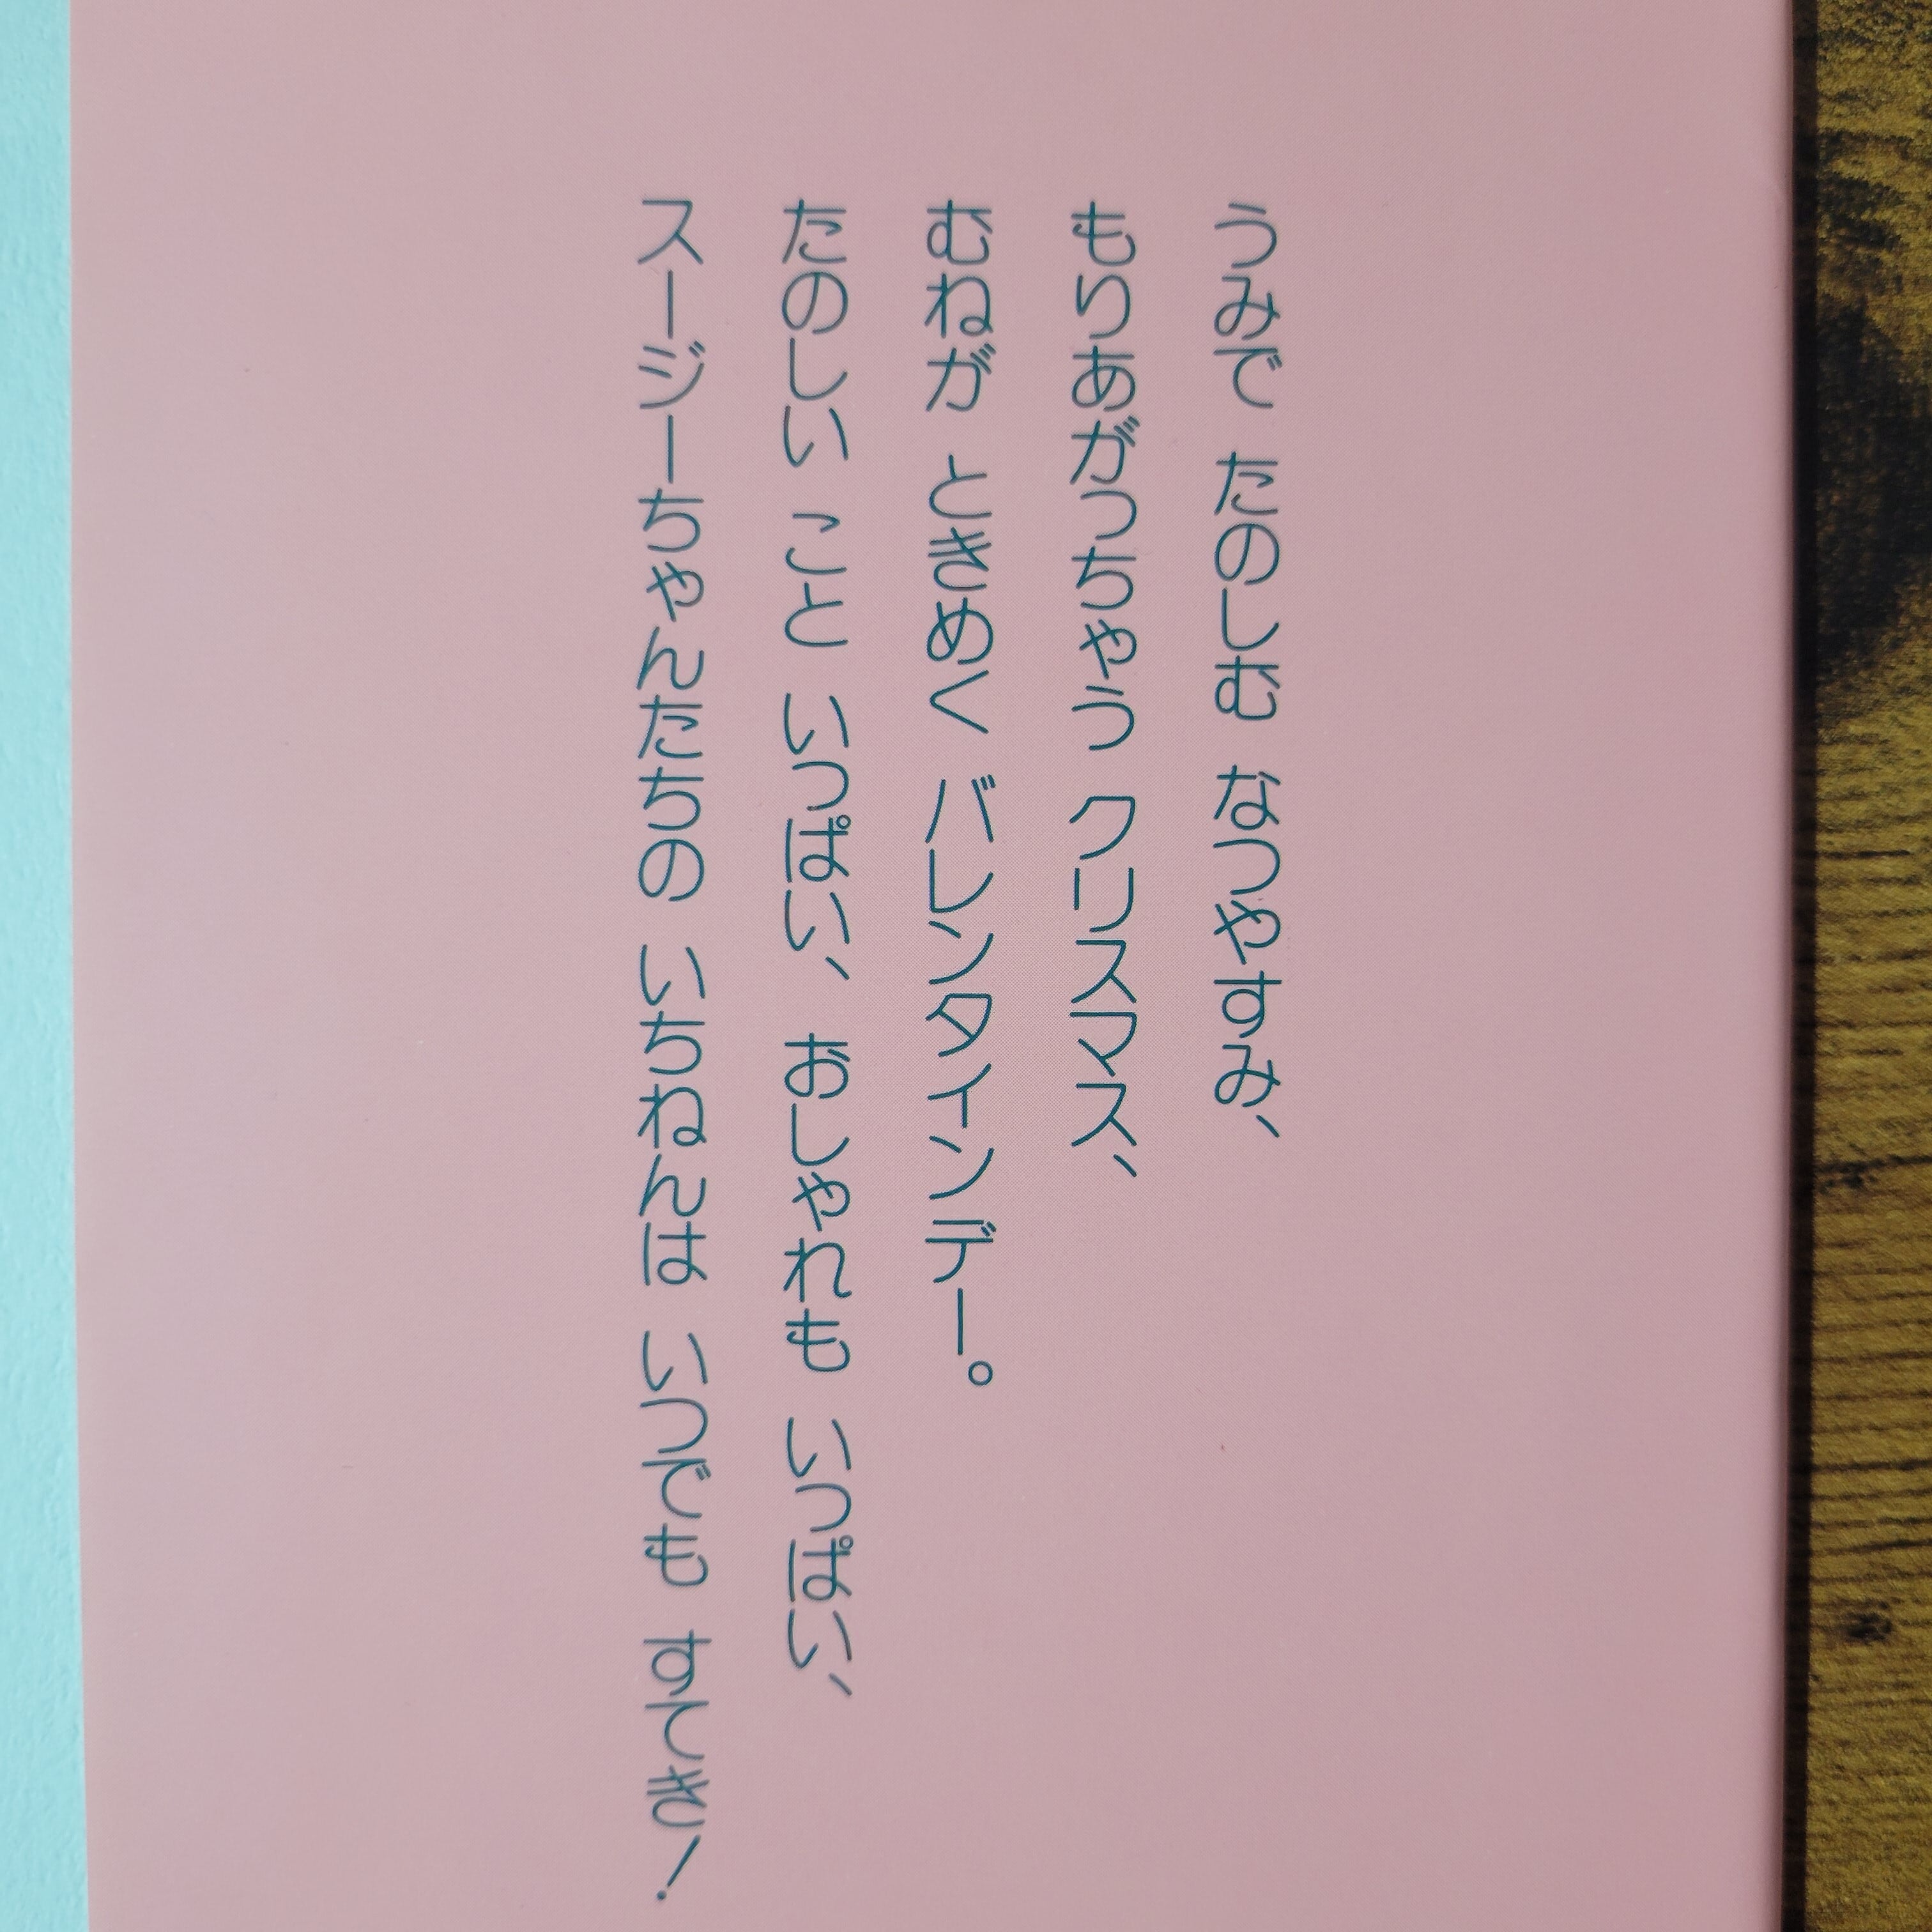 うみで たのしむ なつやすみ、
もりあがっちゃう クリスマス、
むねが ときめく バレンタインデー。
たのしい こと いっぱい、おしゃれも いっぱい、
スージーちゃんたちの いちねんは いつでも すてき!